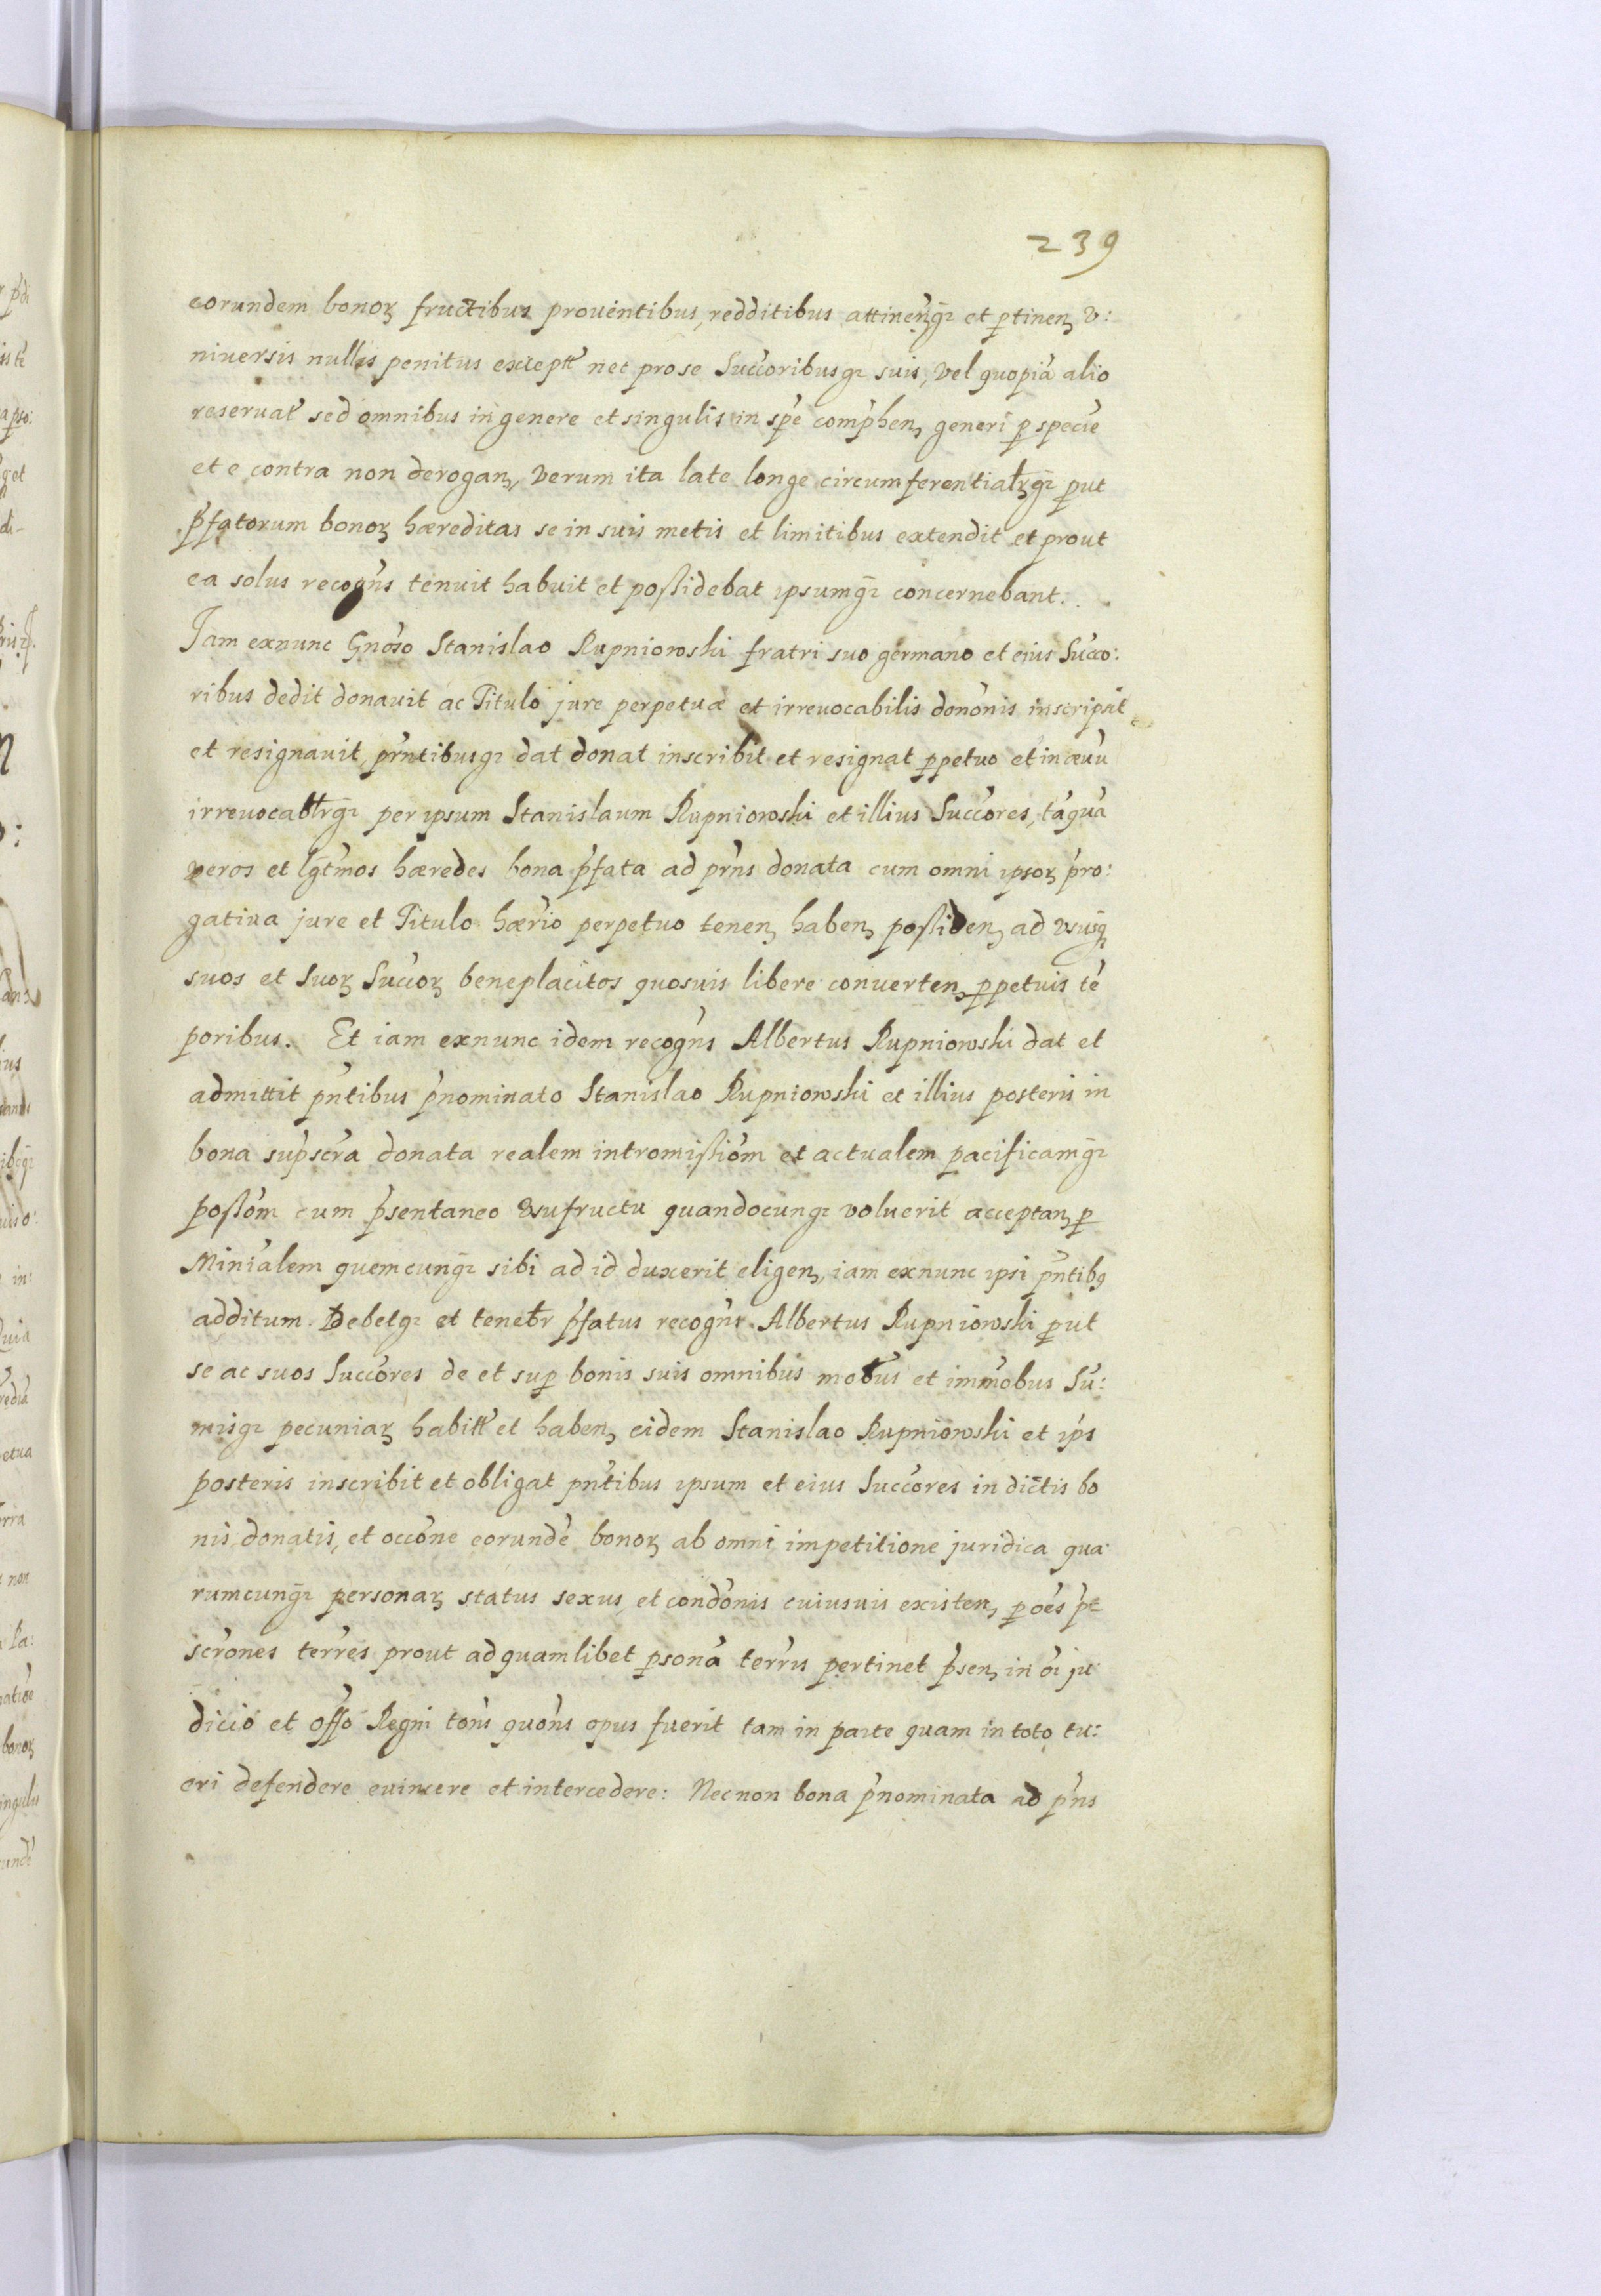 239
eorundem bonoꝝ fructibus prouentibus, redditibus attinenꝫqꝫ et ꝑtinenꝫ v:
niuersis nullis penitus except̃ nec pro se Succ̃oribusqꝫ suis, vel quopiã alio
reseruat̃ sed omnibus in genere et singulis in sp̃e comp̃henꝫ generi ꝑ speciẽ
et e contra non deroganꝫ, verum ita late longe circumferentialr̃qꝫ ꝓut
p̃fatorum bonoꝝ hæreditas se in suis metis et limitibus extendit et prout
ea solus recogñs tenuit habuit et poßidebat ipsumqꝫ concernebant.
Iam exnunc Gnõso Stanislao Rupniowski fratri suo germano et eius Succ̃o:
ribus dedit donauit ac Titulo jure perpetuæ et irreuocabilis donõnis inscripsit
et resignauit, pr̃ntibusqꝫ dat donat inscribit et resignat ꝑpetuo et in æuũ
irreuocablr̃qꝫ per ipsum Stanislaum Rupniowski et illius Succ̃ores, tãquã
veros et lgt̃mos hæredes bona p̃fata ad pr̃ns donata cum omni ipsoꝝ p̃ro:
gatiua jure et Titulo hær̃io perpetuo tenenꝫ habenꝫ poßidenꝫ ad vsusqꝫ
suos et Suoꝝ Succ̃oꝝ beneplacitos quosuis libere conuertenꝫ ꝑpetuis tẽ
poribus. Et iam exnunc idem recogñs Albertus Rupniowski dat et
admittit p̃ntibus p̃nominato Stanislao Rupniowski et illius posteris in
bona sup̃scr̃a donata realem intromißiõm et actualem pacificamqꝫ
poßõm cum p̃sentaneo vsufructu quandocunqꝫ voluerit acceptanꝫ ꝑ
Miniãlem quemcunqꝫ sibi ad id duxerit eligenꝫ, iam exnunc ipsi p̃ntibꝫ
additum. Debetqꝫ et tenetr̃ p̃fatus recogñs Albertus Rupniowski ꝓut
se ac suos Succ̃ores de et suꝑ bonis suis omnibus mobũs et immõbus Sũ:
misqꝫ pecuniaꝝ habit̃ et habenꝫ eidem Stanislao Rupniowski et ip̃s
posteris inscribit et obligat pñtibus ipsum et eius Succ̃ores in dictis bo
nis donatis, et occõne eorundẽ bonoꝝ ab omni impetitione juridica qua
rumcunqꝫ personaꝝ status sexus, et condõnis cuiusuis existenꝫ ꝑ oẽs p̃
scr̃ones terr̃es prout ad quamlibet ꝑsonã terr̃is pertinet p̃senꝫ in õi ju
dicio et off̃o Regni tõns quõns opus fuerit tam in parte quam in toto tu:
eri defendere euincere et intercedere: Necnon bona p̃nominata ad p̃ns